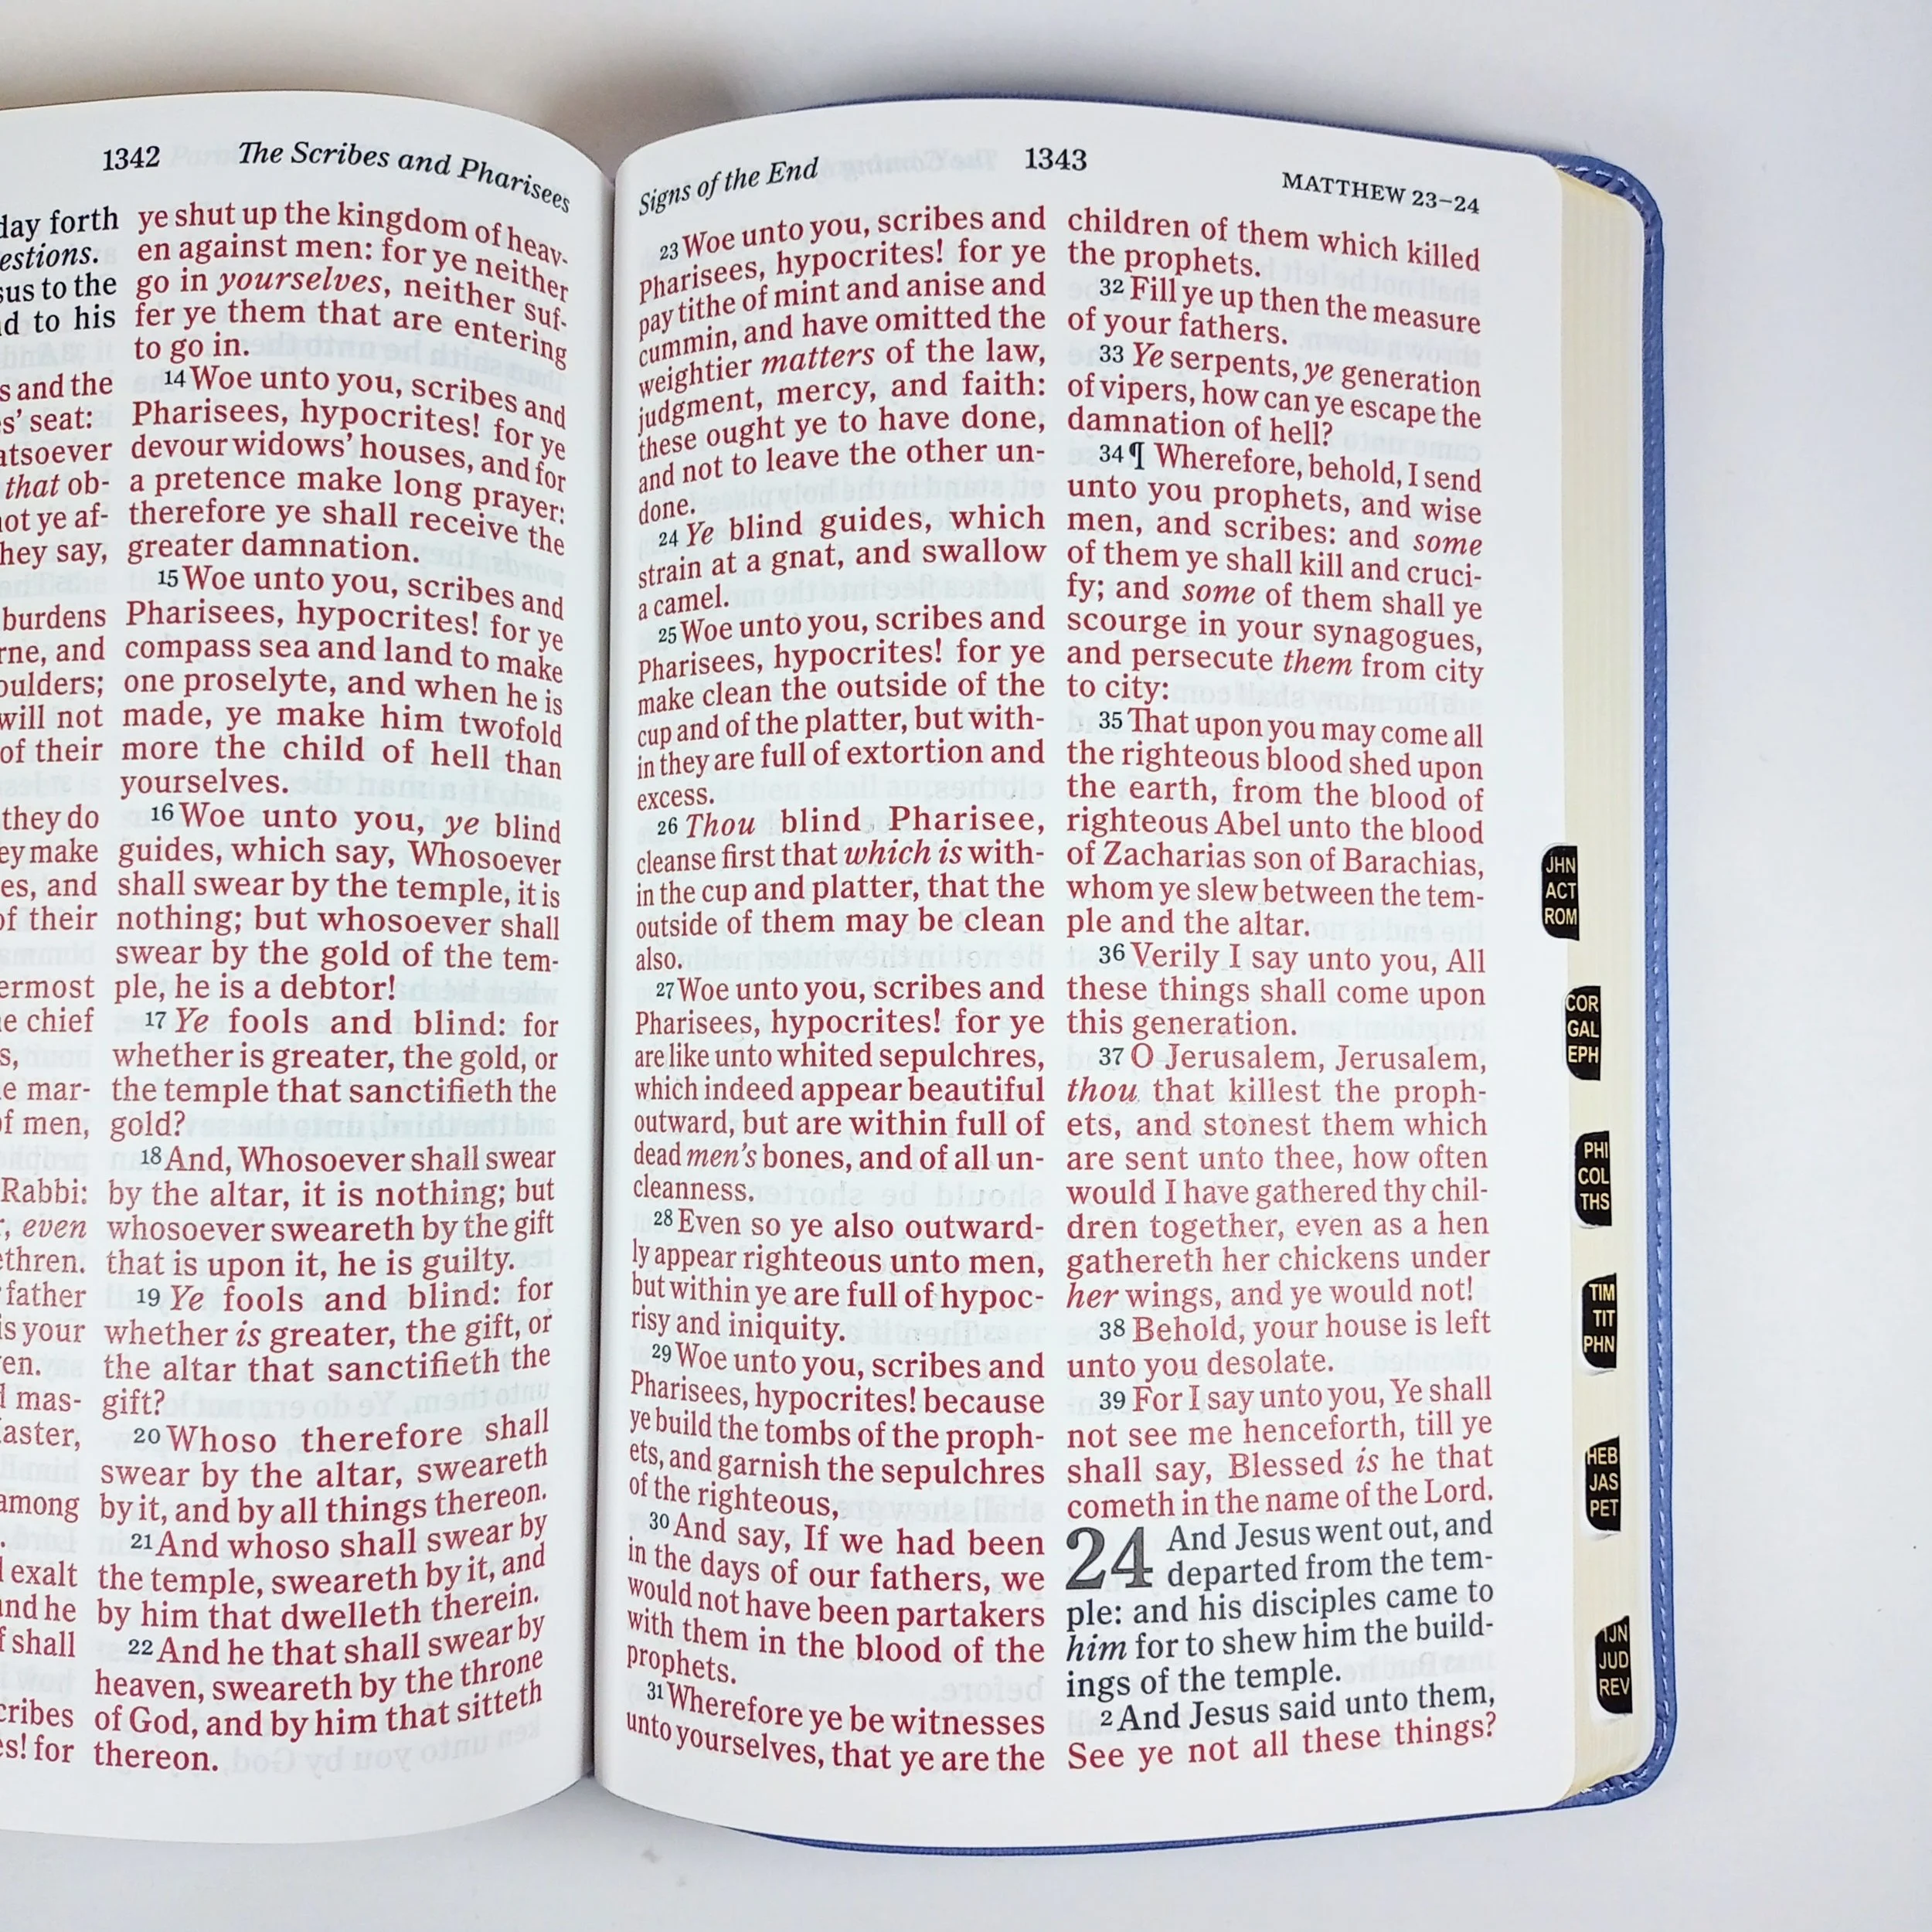 1342 The Scribes and Pharisees
day forth
estions.
sus to the
d to his
s and the
s' seat:
atsoever
that ob-
not ye af-
hey say,
burdens
rne, and
oulders;
will not
of their
they do
ey make
es, and
of their
ermost
e chief
s,
e mar-
of men,
Rabbi:
, even
ethren.
father
is your
en.
mas-
aster,
among
exalt
nd he
shall
cribes
s! for
ye shut up the kingdom of heav-
en against men: for ye neither
go in yourselves, neither suf-
fer ye them that are entering
to go in.
14 Woe unto you, scribes and
Pharisees, hypocrites! for ye
devour widows' houses, and for
a pretence make long prayer:
therefore ye shall receive the
greater damnation.
15 Woe unto you, scribes and
Pharisees, hypocrites! for ye
compass sea and land to make
one proselyte, and when he is
made, ye make him twofold
more the child of hell than
yourselves.
16 Woe unto you, ye blind
guides, which say, Whosoever
shall swear by the temple, it is
nothing; but whosoever shall
swear by the gold of the tem-
ple, he is a debtor!
17 Ye fools and blind: for
whether is greater, the gold, or
the temple that sanctifieth the
gold?
18 And, Whosoever shall swear
by the altar, it is nothing; but
whosoever sweareth by the gift
that is upon it, he is guilty.
19 Ye fools and blind: for
whether is greater, the gift, or
the altar that sanctifieth the
gift?
20 Whoso therefore shall
swear by the altar, sweareth
by it, and by all things thereon.
21 And whoso shall swear by
the temple, sweareth by it, and
by him that dwelleth therein.
22 And he that shall swear by
heaven, sweareth by the throne
of God, and by him that sitteth
thereon.
Signs of the End 1343 MATTHEW 23–24
23 Woe unto you, scribes and
Pharisees, hypocrites! for ye
pay tithe of mint and anise and
cummin, and have omitted the
weightier matters of the law,
judgment, mercy, and faith:
these ought ye to have done,
and not to leave the other un-
done.
24 Ye blind guides, which
strain at a gnat, and swallow
a camel.
25 Woe unto you, scribes and
Pharisees, hypocrites! for ye
make clean the outside of the
cup and of the platter, but with-
in they are full of extortion and
excess.
26 Thou blind Pharisee,
cleanse first that which is with-
in the cup and platter, that the
outside of them may be clean
also.
27 Woe unto you, scribes and
Pharisees, hypocrites! for ye
are like unto whited sepulchres,
which indeed appear beautiful
outward, but are within full of
dead men's bones, and of all un-
cleanness.
28 Even so ye also outward-
ly appear righteous unto men,
but within ye are full of hypoc-
risy and iniquity.
29 Woe unto you, scribes and
Pharisees, hypocrites! because
ye build the tombs of the proph-
ets, and garnish the sepulchres
of the righteous,
30 And say, If we had been
in the days of our fathers, we
would not have been partakers
with them in the blood of the
prophets.
31 Wherefore ye be witnesses
unto yourselves, that ye are the
children of them which killed
the prophets.
32 Fill ye up then the measure
of your fathers.
33 Ye serpents, ye generation
of vipers, how can ye escape the
damnation of hell?
34 ¶ Wherefore, behold, I send
unto you prophets, and wise
men, and scribes: and some
of them ye shall kill and cruci-
fy; and some of them shall ye
scourge in your synagogues,
and persecute them from city
to city:
35 That upon you may come all
the righteous blood shed upon
the earth, from the blood of
righteous Abel unto the blood
of Zacharias son of Barachias,
whom ye slew between the tem-
ple and the altar.
36 Verily I say unto you, All
these things shall come upon
this generation.
37 O Jerusalem, Jerusalem,
thou that killest the proph-
ets, and stonest them which
are sent unto thee, how often
would I have gathered thy chil-
dren together, even as a hen
gathereth her chickens under
her wings, and ye would not!
38 Behold, your house is left
unto you desolate.
39 For I say unto you, Ye shall
not see me henceforth, till ye
shall say, Blessed is he that
cometh in the name of the Lord.
24 And Jesus went out, and
departed from the tem-
ple: and his disciples came to
him for to shew him the build-
ings of the temple.
2 And Jesus said unto them,
See ye not all these things?
JHN
ACT
ROM
COR
GAL
EPH
PHI
COL
THS
TIM
TIT
PHN
HEB
JAS
PET
1JN
JUD
REV